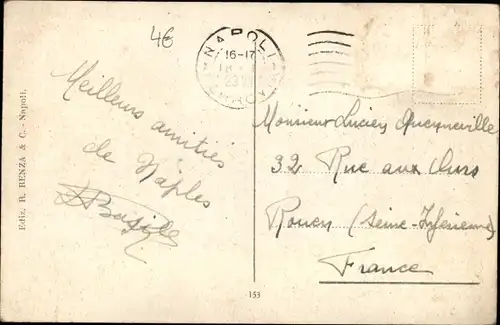 4€
NAPOLI
16-17
23
FERROVIA
Meilleurs amitiés
de Naples
Basile
Monsieur Lucien Queyneville
32 Rue aux Ours
Rouen (Seine-Inférieure)
France
Ediz. R. RENZA & C. - Napoli.
153